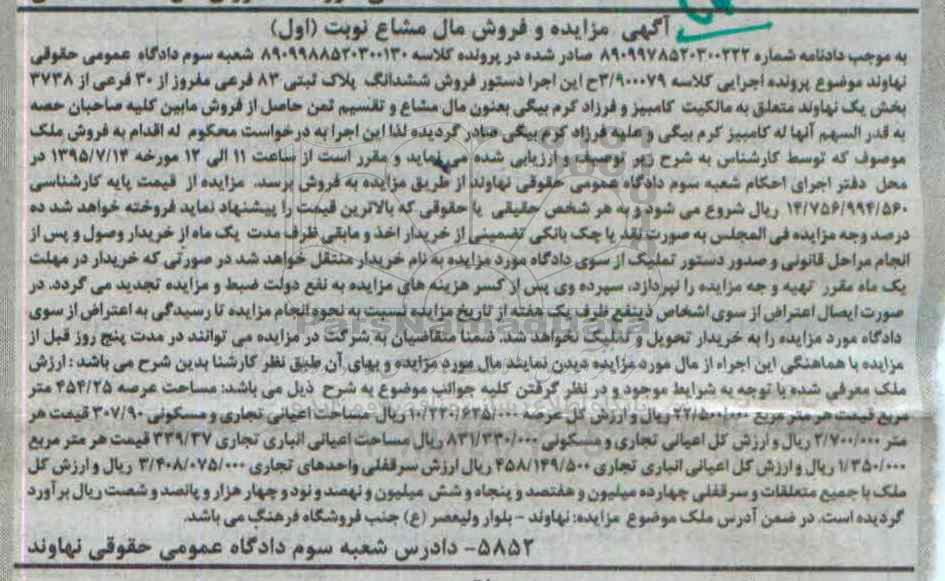 آگهی مزایده و فروش مال مشاع نوبت (اول)
به موجب دادنامه شماره ۸۹۰۹۹۷۸۵۲۰۳۰۰۲۲۲ صادر شده در پرونده کلاسه ۸۹۰۹۹۸۸۵۲۰۳۰۰۱۳۰ شعبه سوم دادگاه عمومی حقوقی
نهاوند موضوع پرونده اجرایی کلاسه ۳/۹۰۰۰۷۹ح این اجرا دستور فروش ششدانگ پلاک ثبتی ۸۳ فرعی مفروز از ۳۰ فرعی از ۳۷۳۸
بخش یک نهاوند متعلق به مالکیت کامبیز و فرزاد کرم بیگی بعنون مال مشاع و تقسیم ثمن حاصل از فروش مابین کلیه صاحبان حصه
به قدر السهم آنها له کامبیز کرم بیگی و علیه فرزاد کرم بیگی صادر گردیده لذا این اجرا به درخواست محکوم له اقدام به فروش ملک
موصوف که توسط کارشناس به شرح زیر توصیف و ارزیابی شده می نماید و مقرر است از ساعت ۱۱ الی ۱۲ مورخه ۱۳۹۵/۷/۱۴ در
محل دفتر اجرای احکام شعبه سوم دادگاه عمومی حقوقی نهاوند از طریق مزایده به فروش برسد. مزایده از قیمت پایه کارشناسی
۱۴/۷۵۶/۹۹۴/۵۶۰ ریال شروع می شود و به هر شخص حقیقی یا حقوقی که بالاترین قیمت را پیشنهاد نماید فروخته خواهد شد ده
درصد وجه مزایده فی المجلس به صورت نقد یا چک بانکی تضمینی از خریدار اخذ و مابقی ظرف مدت یک ماه از خریدار وصول و پس از
انجام مراحل قانونی و صدور دستور تملیک از سوی دادگاه مورد مزایده به نام خریدار منتقل خواهد شد در صورتی که خریدار در مهلت
یک ماه مقرر تهیه و جه مزایده را نپردازد، سپرده وی پس از کسر هزینه های مزایده به نفع دولت ضبط و مزایده تجدید می گردد. در
صورت ایصال اعتراض از سوی اشخاص ذینفع ظرف یک هفته از تاریخ مزایده نسبت به نحوه انجام مزایده تا رسیدگی به اعتراض از سوی
دادگاه مورد مزایده را به خریدار تحویل و تملیک نخواهد شد. ضمنا متقاضیان به شرکت در مزایده می توانند در مدت پنج روز قبل از
مزایده با هماهنگی این اجراء از مال مورد مزایده دیدن نمایند مال مورد مزایده و بهای آن طبق نظر کارشنا بدین شرح می باشد : ارزش
ملک معرفی شده با توجه به شرایط موجود و در نظر گرفتن کلیه جوانب موضوع به شرح ذیل می باشد: مساحت عرصه ۴۵۴/۲۵ متر
مربع قیمت هر متر مربع ۲۲/۵۰۰/۰۰۰ ریال و ارزش کل عرصه ۱۰/۲۲۰/۶۲۵/۰۰۰ ریال مساحت اعیانی تجاری و مسکونی ۳۰۷/۹۰ قیمت هر
متر ۲/۷۰۰/۰۰۰ ریال و ارزش کل اعیانی تجاری و مسکونی ۸۳۱/۳۳۰/۰۰۰ ریال مساحت اعیانی انباری تجاری ۳۳۹/۳۷ قیمت هر متر مربع
۱/۳۵۰/۰۰۰ ریال و ارزش کل اعیانی انباری تجاری ۴۵۸/۱۴۹/۵۰۰ ریال ارزش سرقفلی واحدهای تجاری ۳/۴۰۸/۰۷۵/۰۰۰ ریال و ارزش کل
ملک با جمیع متعلقات و سرقفلی چهارده میلیون و هفتصد و پنجاه و شش میلیون و نهصد و نود و چهار هزار و پانصد و شصت ریال برآورد
گردیده است. در ضمن آدرس ملک موضوع مزایده: نهاوند - بلوار ولیعصر (ع) جنب فروشگاه فرهنگ می باشد.
۵۸۵۲- دادرس شعبه سوم دادگاه عمومی حقوقی نهاوند
ParsNamadData